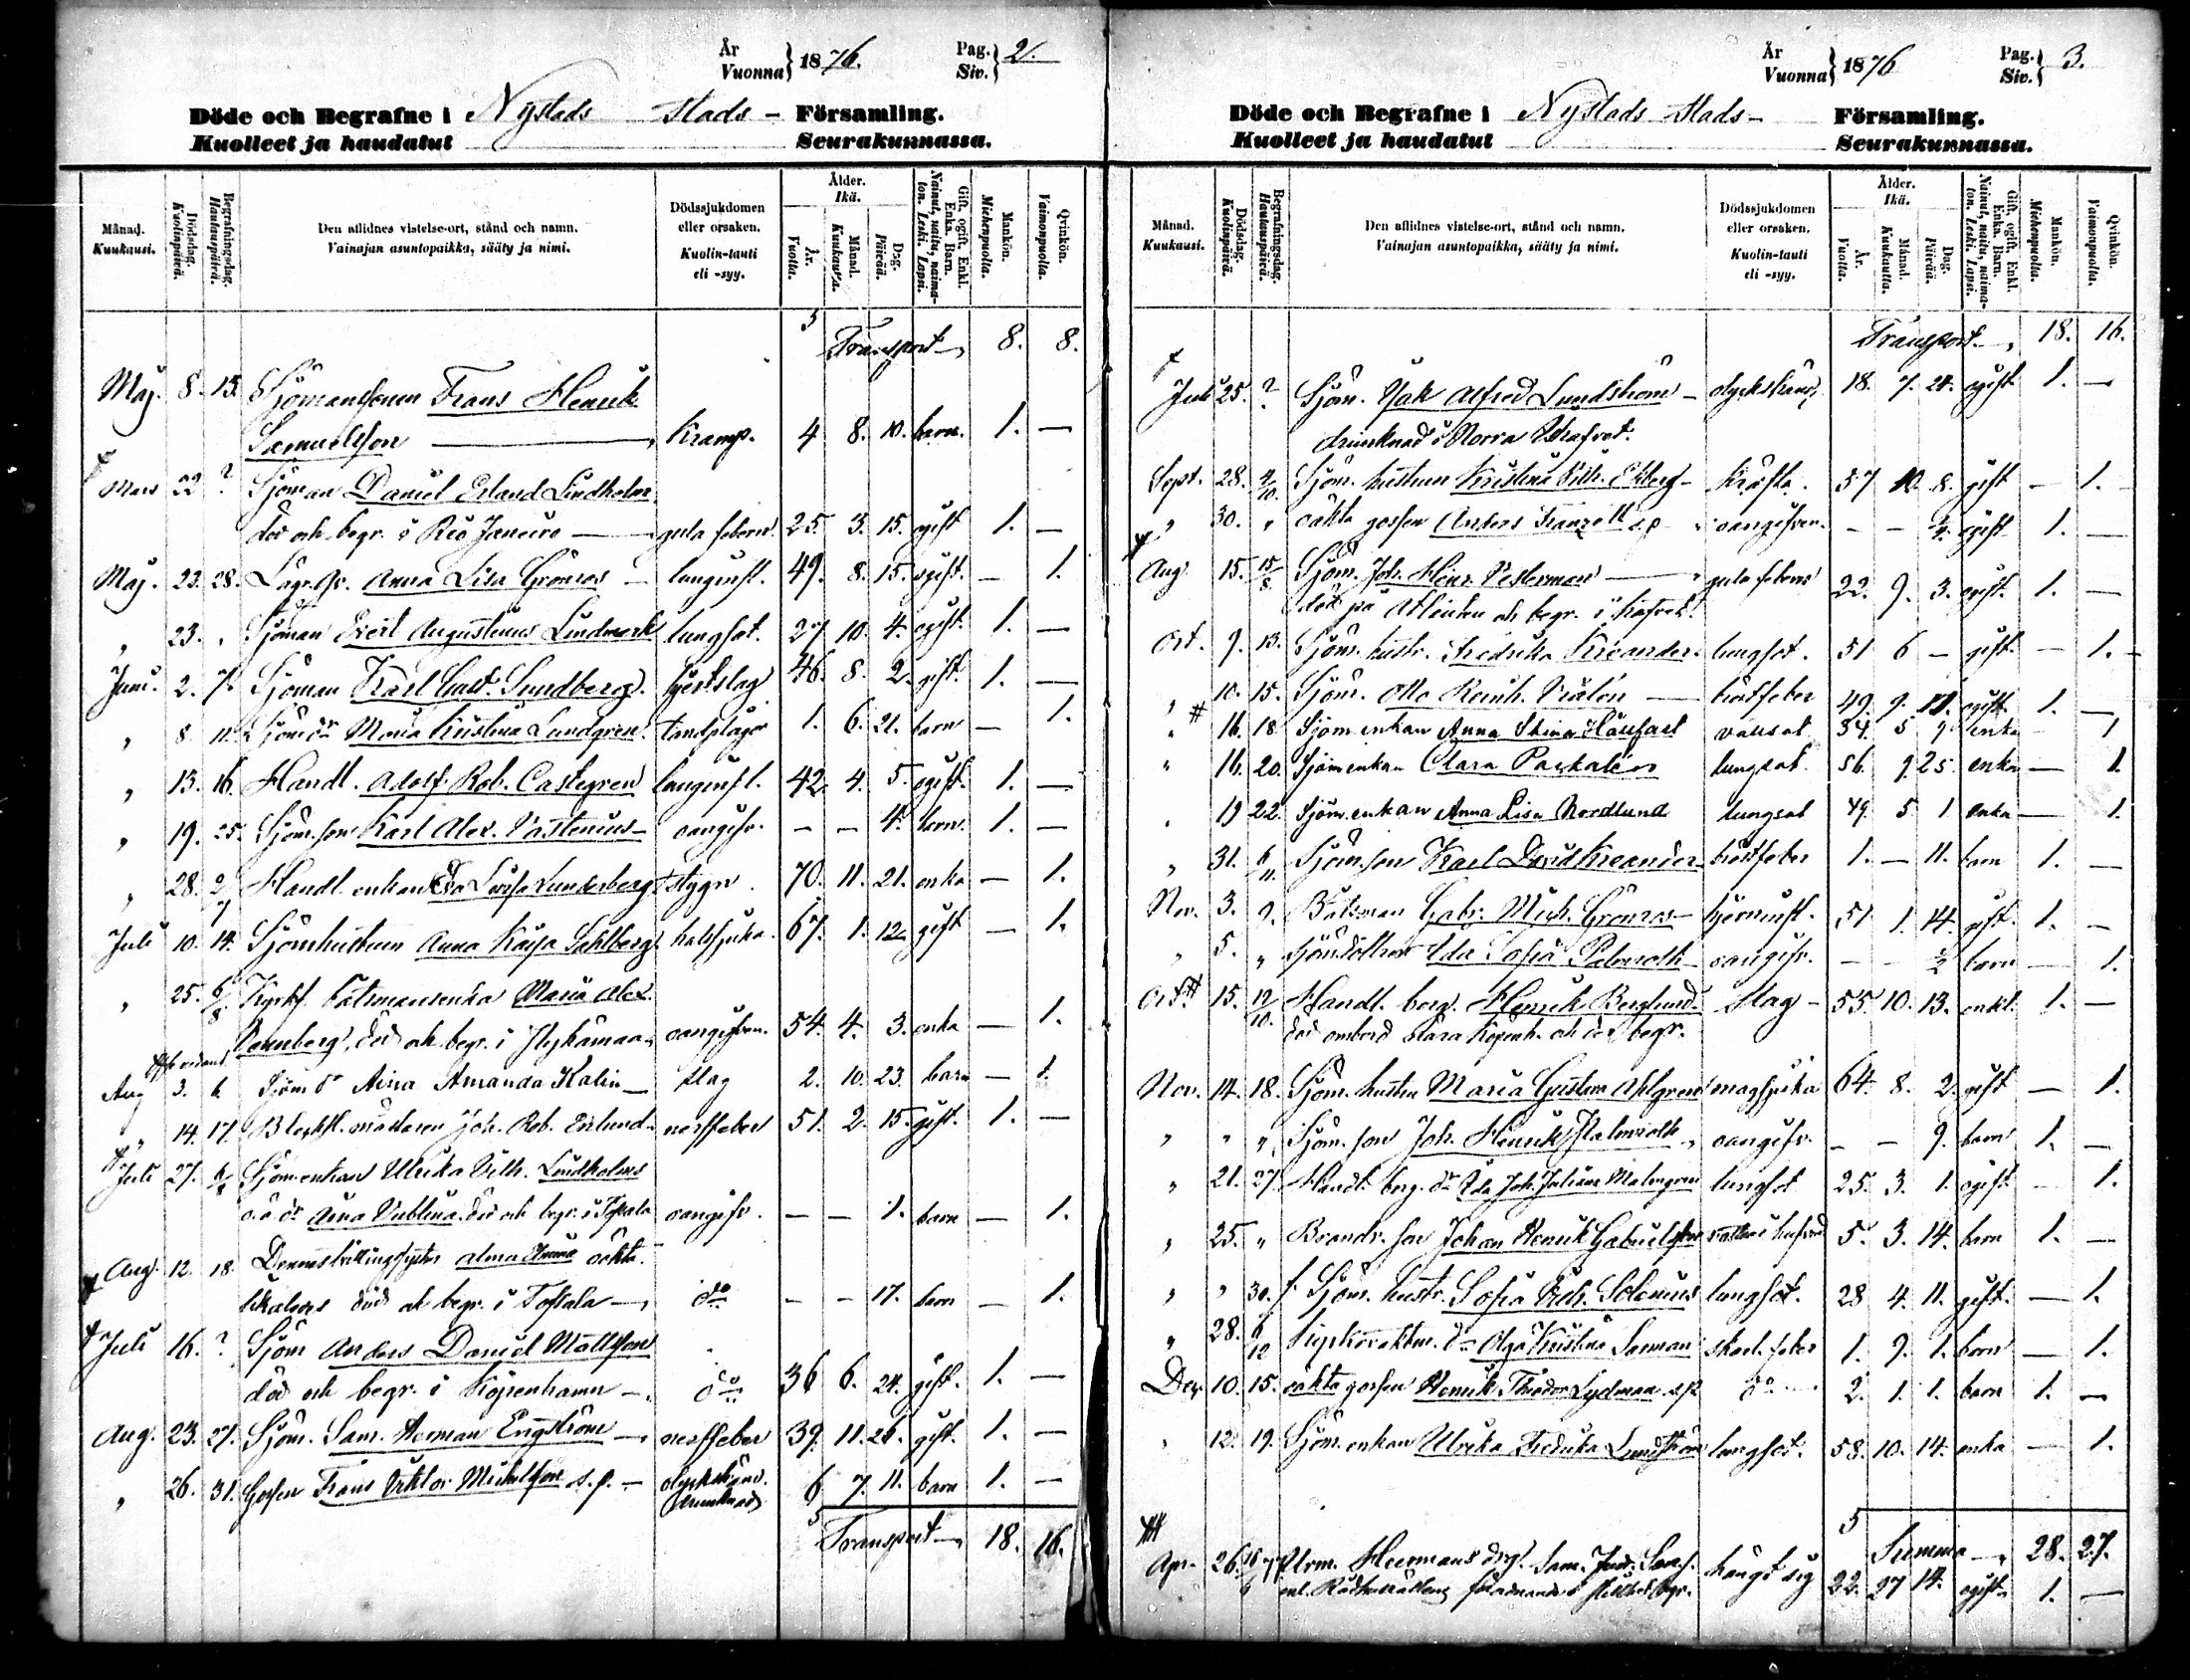 År
Vuonna} 1876. Pag.
Siv.} 2.
Döde och Begrafne i Nystads Stads- Församling.
Kuolleet ja haudatut Seurakunnassa.
Månad. Kuukausi.
Dödsdag. Kuolinpäivä.
Begrafningsdag. Hautauspäivä.
Den aflidnes vistelse-ort, stånd och namn.
Vainajan asuntopaikka, sääty ja nimi.
Dödssjukdomen eller orsaken.
Kuolin-tauti eli -syy.
Ålder. Ikä.
År. Vuotta.
Månad. Kuukautta.
Dag. Päivää.
Gift, ogift, Enkl. Enka. Barn.
Nainut, naitu, naimaton. Leski. Lapsi.
Mankön. Miehenpuolta.
Qvinkön. Vaimonpuolta.
Transport 8. 8.
Maj. 8. 15. Sjömanssonen Frans Henrik
Samuelsson kramp. 4 8. 10. barn. 1. —
Mars 22 ? Sjöman Daniel Erland Lindholm
död och begr. i Rio Janeiro gula febern. 25. 3. 15. ogift 1. —
Maj. 23. 28. Anna Lisa Grönros lunginfl. 49. 8. 15. ogift. — 1.
" 23. " Sjöman Evert Augustinus Lindmark lungsot. 27 10. 4. ogift. 1. —
Juni. 2. 7. Sjöman Karl Gust. Sundberg. hjertslag 46. 8. 2. gift. 1. —
" 8. 11. Sjöm dr Maria Kristina Lundgren. tandplågor 1. 6. 21. barn — 1.
" 13. 16. Handl. Adolf Rob. Castegren lunginfl. 42. 4. 5. ogift. 1. —
" 19. 25. Sjöm. son Karl Alex. Vastenius oangifv. — — 4. barn. 1. —
" 28. 2/7 Handl. enkan Eva Lovisa Lunderberg stygn. 70. 11. 21. enka — 1.
Juli 10. 14. Sjömhustrun Anna Kajsa Sahlberg halssjuka. 67. 1. 12. gift — 1.
" 25. 6/8 Kyrkf. båtsmansenka Maria Alex.
Rennberg, död och begr. i oangifven. 54. 4. 3. enka — 1.
Aug 3. 6. Sjöm dr Aina Amanda Kalin slag 2. 10. 23. barn — 1.
" 14. 17. Blecksl. mästaren Joh. Rob. Enlund nerffeber 51. 2. 15. gift. 1. —
Juli 27. 6/8 Sjöm enkan Ulrika Vilh. Lindholms
o. ä dr Aina död och begr. i Tofsala oangifv. — — 1. barn — 1.
Aug. 12. 18. Alma Emma oäkta.
död och begr. i Tofsala do — — 17. barn — 1.
Juli 16. ? Sjöm Anders Daniel Mattsson
död och begr. i Köpenhamn do 36 6. 24. gift. 1. —
Aug. 23. 27. Sjöm. Sam. Herman Engström nerffeber 39. 11. 26. gift. 1. —
" 26. 31. Gossen Frans Viktor Mickelsson s.p. olyckshänd.
drunknad 6 7. 11. barn 1. —
Transport 18. 16.
År
Vuonna} 1876 Pag.
Siv.} 3.
Döde och Begrafne i Nystads Stads- Församling.
Kuolleet ja haudatut Seurakunnassa.
Månad. Kuukausi.
Dödsdag. Kuolinpäivä.
Begrafningsdag. Hautauspäivä.
Den aflidnes vistelse-ort, stånd och namn.
Vainajan asuntopaikka, sääty ja nimi.
Dödssjukdomen eller orsaken.
Kuolin-tauti eli -syy.
Ålder. Ikä.
År. Vuotta.
Månad. Kuukautta.
Dag. Päivää.
Gift, ogift, Enkl. Enka. Barn.
Nainut, naitu, naimaton. Leski. Lapsi.
Mankön. Miehenpuolta.
Qvinkön. Vaimonpuolta.
Transport 18. 16.
Juli 25. ? Sjöm. Isak Alfred Lundström olyckshänd. 18. 7. 24. ogift 1. —
drunknad i Norra
Sept. 28. 4/10. Sjöm. hustrun Kristina Vilh. Ekberg kräfta. 57 10. 8. gift — 1.
" 30. " oäkta gossen Anders Franzell s.p. oangifven. — — ogift 1. —
Aug. 15. 15/8. Sjöm. Joh. Henr. Vesterman gula febern 22. 9. 3. ogift. 1. —
död på Atlanten och begr. i hafvet.
Oct. 9. 13. Sjöm. hustr. Fredrika Kreander lungsot. 51 6 — gift. — 1.
" 10. 15. Sjöm. Otto Reinh. bröstfeber 49. 9. 11. ogift 1. —
" 16. 18 Sjöm enkan Anna Stina vatusot 54. 5 9 enka — 1
" 16. 20. Sjöm enkan Clara Paskalén lungsot. 56. 9. 25. enka — 1.
" 19 22. Sjöm. enkan Anna Lisa Nordlund lungsot 49. 5 1 enka — 1.
" 31. 6/11 Sjöm son Karl David Kreander bröstfeber 1. — 11. barn 1. —
Nov. 3. 9. Båtsman Gabr. Mich. Grönros hjerninfl. 51 1. 14. gift. 1. —
" 5. " Sjöm dottren Ida Sofia Palmroth oangifv. — — 1/2 barn — 1.
Oct. 15. 19/10. Handl. borg. Henrik Berglund slag 55. 10. 13. enkl. 1. —
död ombord Köpenh. och der begr.
Nov. 14. 18. Sjöm. hustru Maria Gustava Ahlgren magsjuka 64. 8. 2. gift — 1.
" " " Sjöm. son Joh. Henrik Palmroth oangifv. — — 9. barn 1. —
" 21. 27. Handl. borg. dr Ida Joh. Juliana Malmgren lungsot 25. 3. 1. ogift — 1.
" 25. " Brandv. son Johan Henrik Gabrielsson 5. 3. 14. barn 1. —
" " 30. f. Sjöm. hustr. Sofia Vilh. Solenius lungsot. 28 4. 11. gift. — 1.
" 28. 6/12 dr Olga Kristina Sarman skarl. feber 1. 9. 1. barn — 1.
Dec. 10. 15. oäkta gossen Henrik Theodor Lydman s.p. do 2. 1. 1. barn 1. —
" 12. 19. Sjöm. enkan Ulrika Fredrika Lundström lungsot. 58. 10. 14. enka — 1.
Summa 28. 27.
Apr. 26. Heermans drg. Sam. hängt sig 22. 27 14. ogift 1. —